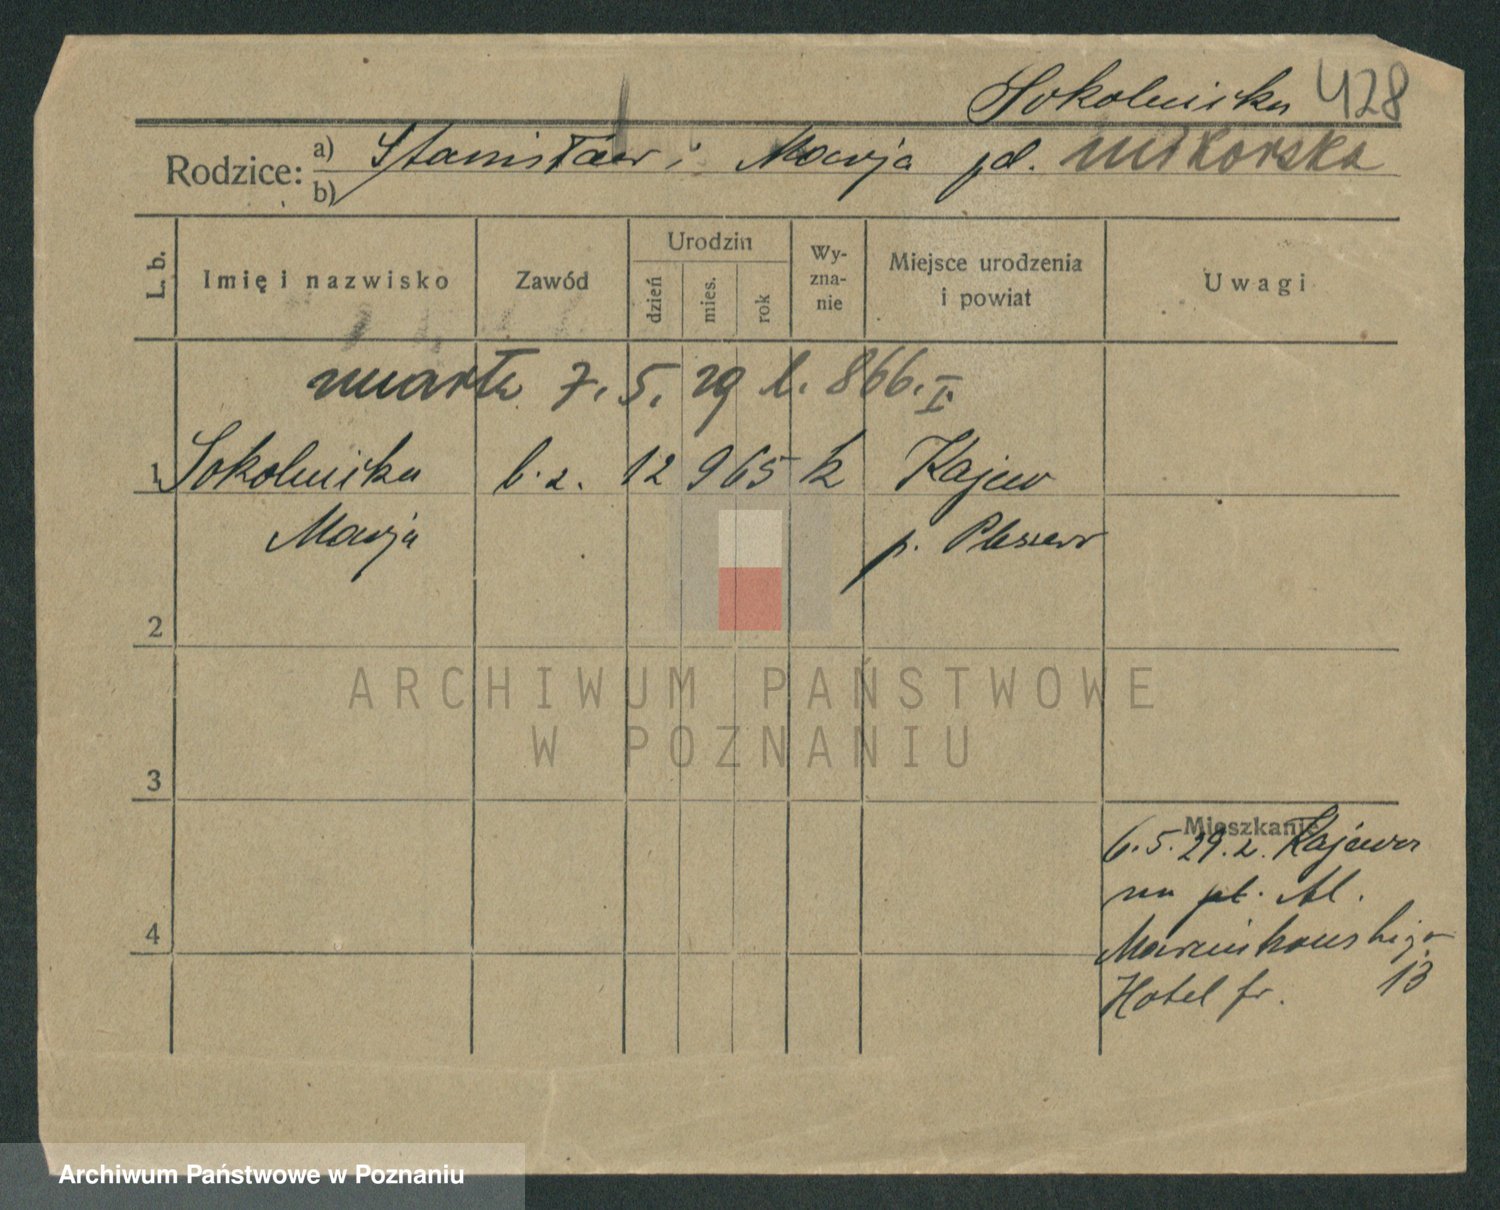 Sokolnicka 428
Rodzice: a) Stanisław i Marja pd. Mikorska
b)
L. b. Imię i nazwisko Zawód Urodzin Wy-zna-nie Miejsce urodzenia i powiat Uwagi
dzień mies. rok
zmarła 7. 5. 29 l. 866. I.
1 Sokolnicka b. z. 12 9 65 k Kajew
Marja p. Pleszew
2
3
4
Mieszkanie
6. 5. 29. z. Kajewa
na pl. Al.
Marcinkowskiego
Hotel fr. 13
ARCHIWUM PAŃSTWOWE
W POZNANIU
Archiwum Państwowe w Poznaniu